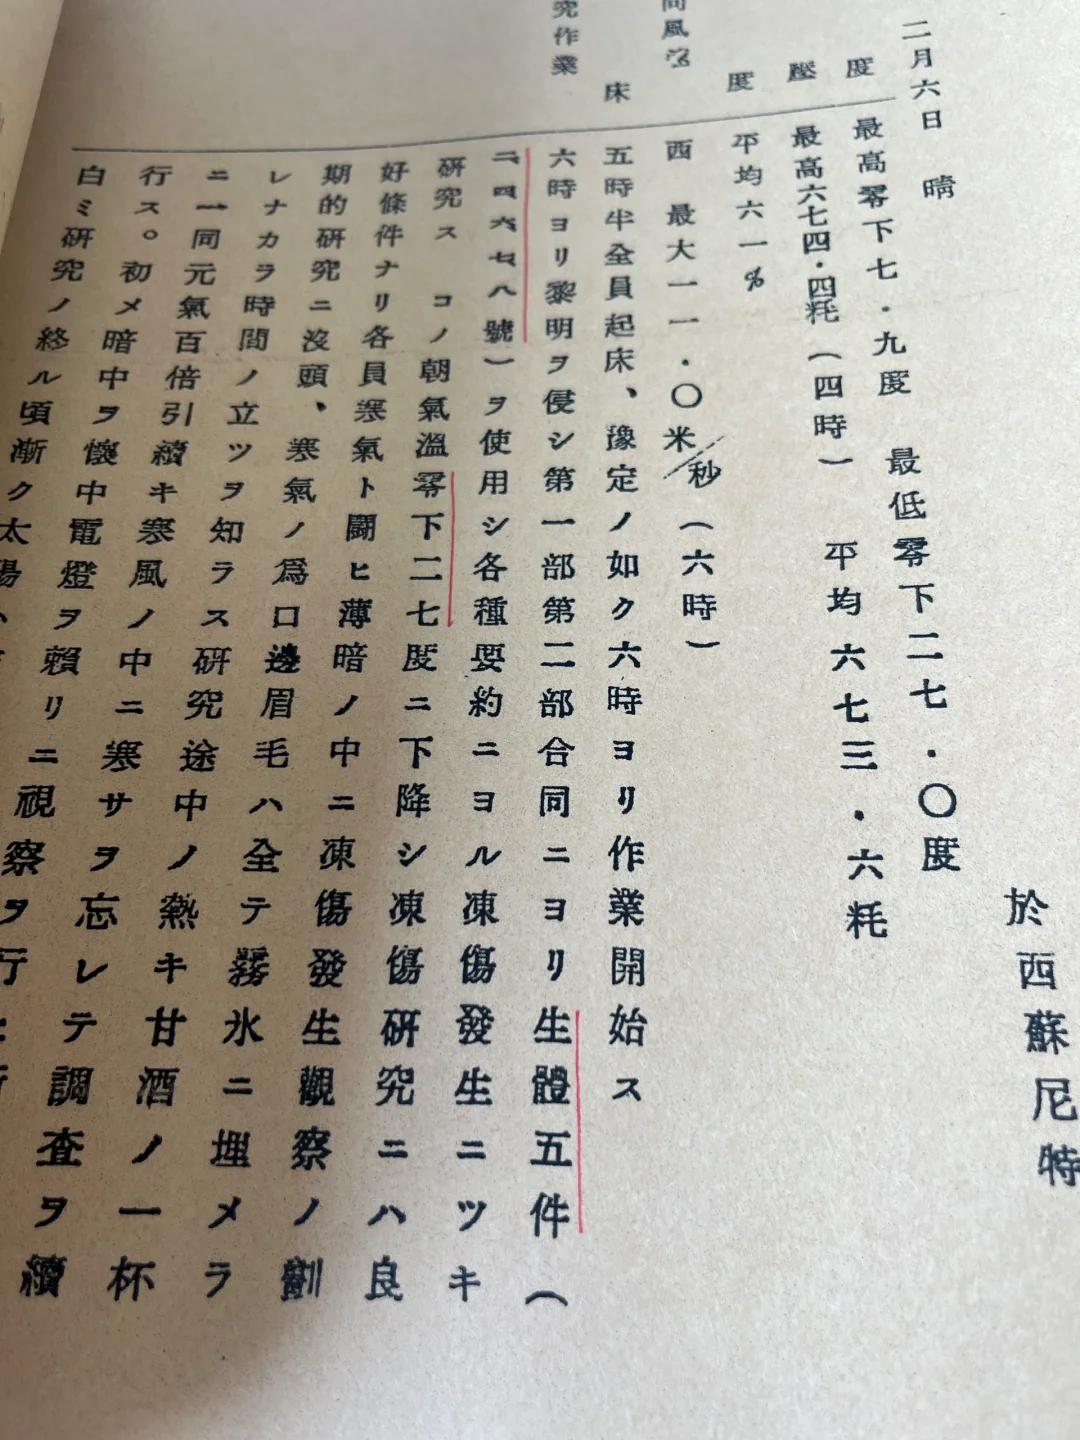 二月六日 晴
於西蘇尼特
度
最高零下七・九度 最低零下二七・〇度
壓
最高六七四・四粍(四時) 平均六七三・六粍
度
平均六一%
向風
西 最大一一・〇米/秒(六時)
床
五時半全員起床、豫定ノ如ク六時ヨリ作業開始ス
究作業
六時ヨリ黎明ヲ侵シ第一部第二部合同ニヨリ生體五件(
二、四、六、七、八號)ヲ使用シ各種要約ニヨル凍傷發生ニツキ
研究ス コノ朝氣溫零下二七度ニ下降シ凍傷研究ニハ良
好條件ナリ各員寒氣ト鬪ヒ薄暗ノ中ニ凍傷發生觀察ノ劃
期的研究ニ沒頭、寒氣ノ爲口邊眉毛ハ全テ霧氷ニ埋メラ
レナカラ時間ノ立ツヲ知ラス研究途中ノ熱キ甘酒ノ一杯
ニ一同元氣百倍引續キ寒風ノ中ニ寒サヲ忘レテ調査ヲ續
行ス。初メ暗中ヲ懷中電燈ヲ賴リニ視察ヲ行
白ミ研究ノ終ル頃漸ク太陽